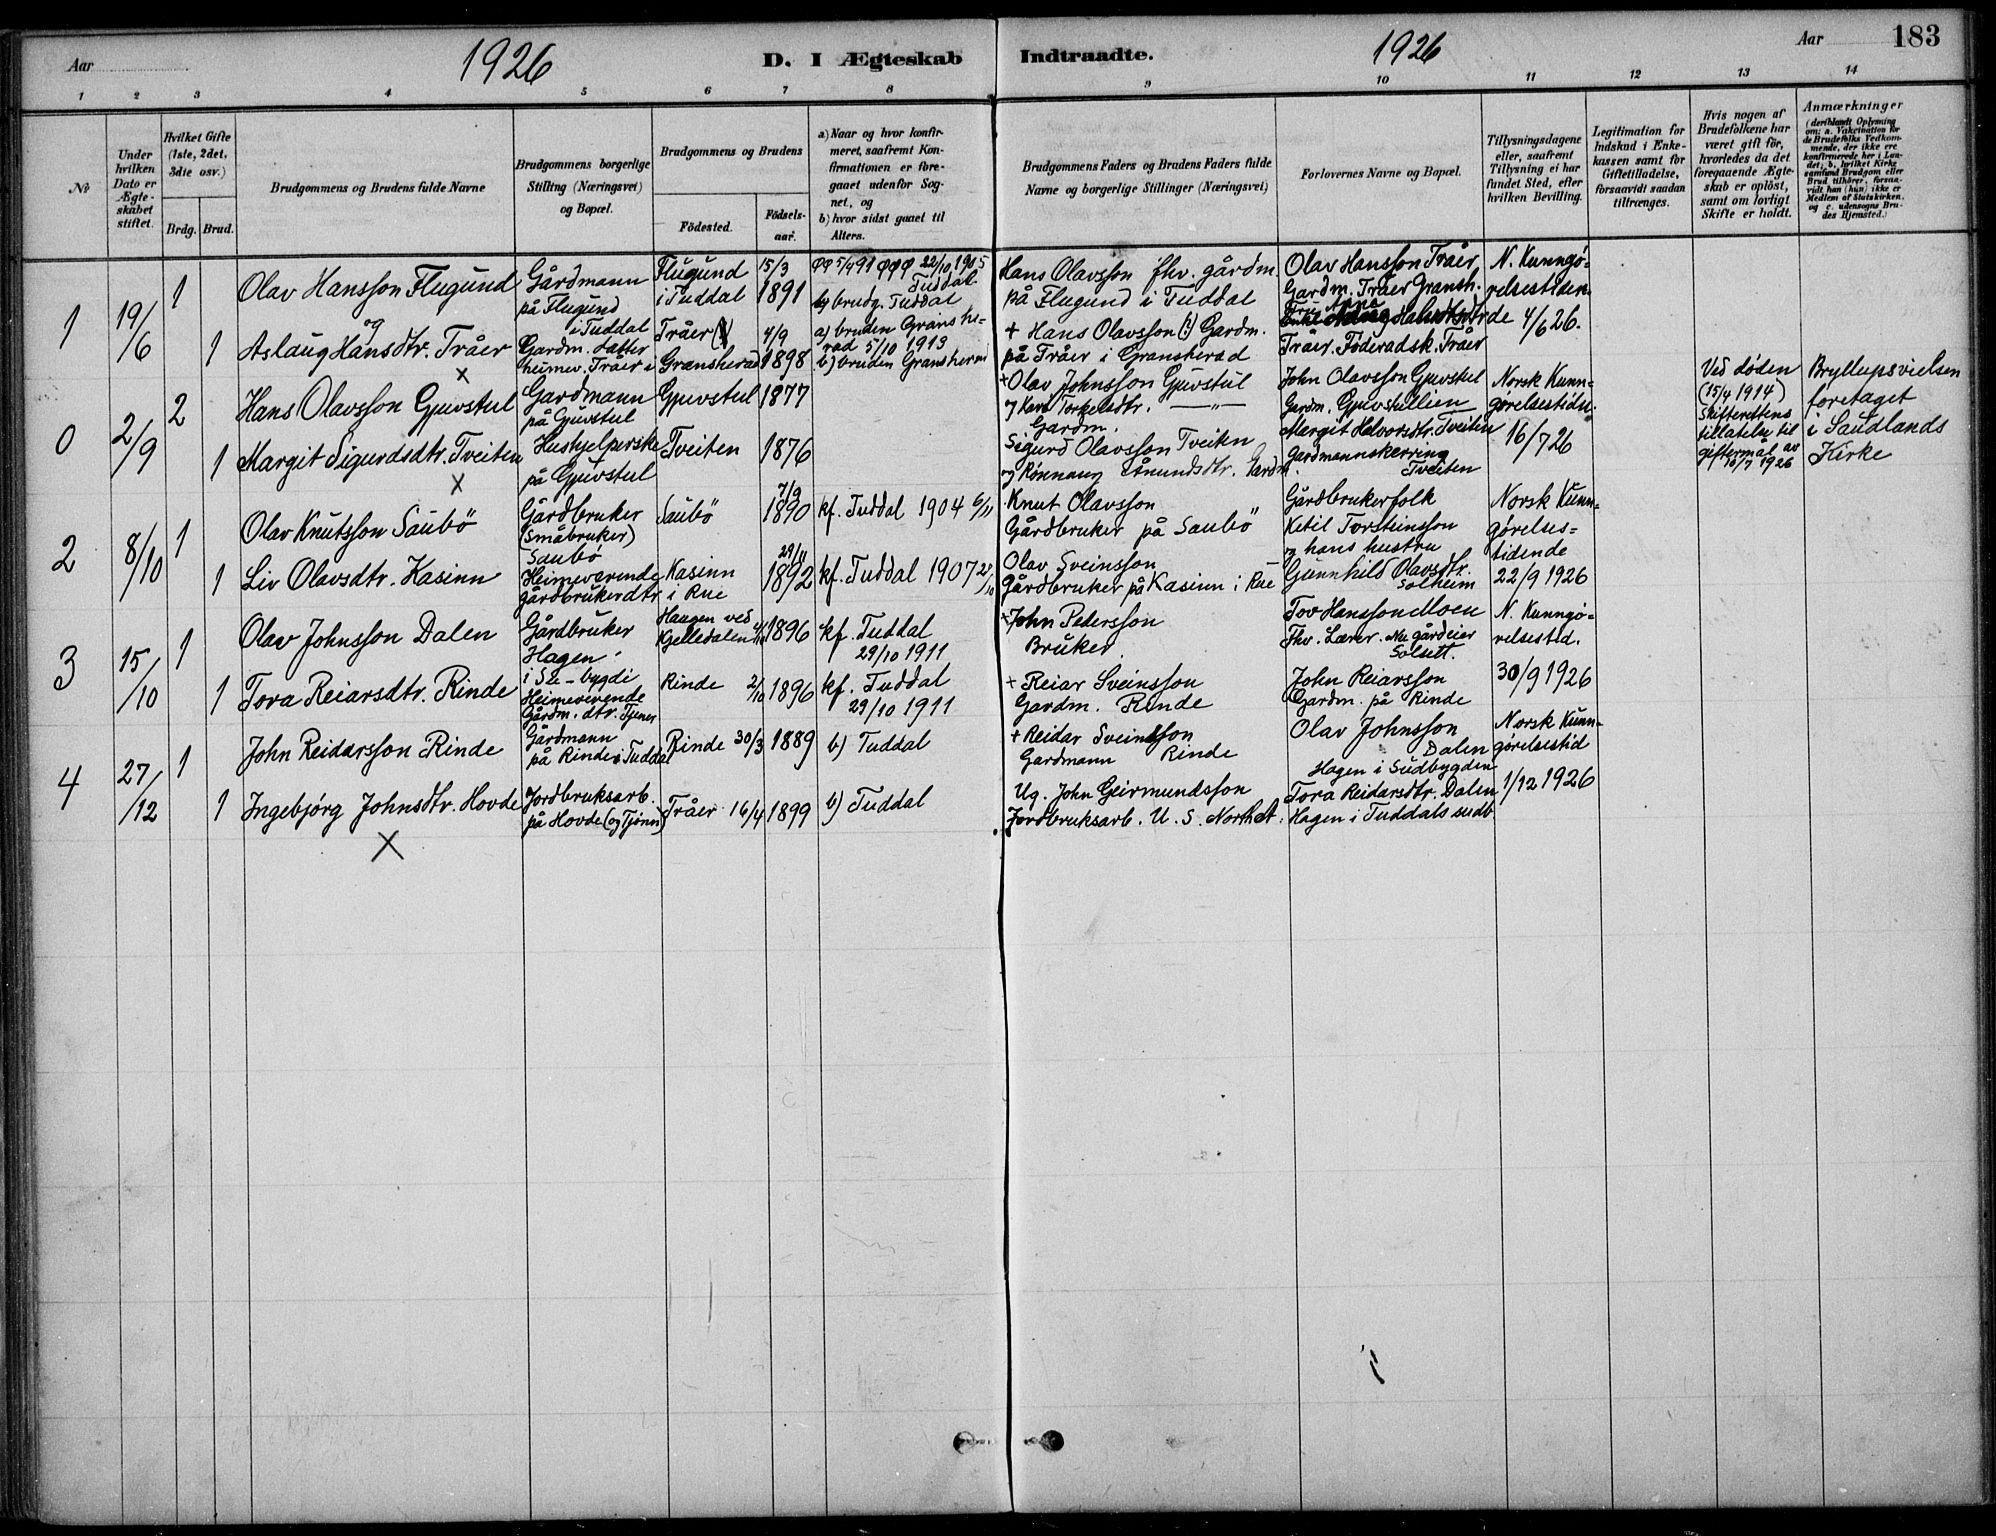 Aar
1926
D. I Ægteskab
Indtraadte.
1926
Aar
183
1 2 3 4 5 6 7 8 9 10 11 12 13 14
No
Under hvilken Dato er Ægteskabet stiftet.
Hvilket Gifte (1ste, 2det, 3die osv.)
Brdg. Brud.
Brudgommens og Brudens fulde Navne
Brudgommens borgerlige Stilling (Næringsvei) og Bopæl.
Brudgommens og Brudens
Födested.
Födsels-aar.
a) Naar og hvor konfirmeret, saafremt Konfirmationen er foregaaet udenfor Sognet, og
b) hvor sidst gaaet til Alters.
Brudgommens Faders og Brudens Faders fulde Navne og borgerlige Stillinger (Næringsvei)
Forlovernes Navne og Bopæl.
Tillysningsdagene eller, saafremt Tillysning ei har fundet Sted, efter hvilken Bevilling.
Legitimation for Indskud i Enkekassen samt for Giftetilladelse, forsaavidt saadan tiltrænges.
Hvis nogen af Brudefolkene har været gift før, hvorledes da det foregaaende Ægteskab er oplöst, samt om lovligt Skifte er holdt.
Anmærkninger
(deriblandt Oplysning om: a. Vakcination for de Brudefolks Vedkommende, der ikke ere konfirmerede her i Landet; b. hvilket Kirkesamfund Brudgom eller Brud tilhörer, forsaavidt han (hun) ikke er Medlem af Statskirken, og c. udensogns Brudes Hjemsted.)
1 19/6 1
Olav Hansson Flugund
og
Gårdmann
på Flugund
i Tuddal
Flugund
i Tuddal
15/3
1891
5/4 91 22/10 1905
Tuddal
b) brudg. Tuddal
Hans Olavsson fhv. gårdm.
på Flugund i Tuddal
Olav Hansson Tråer
Gardm. Tråer Gransh.
N. Kunngø-
relsestiden
4/6 26.
1 Aslaug Hansdtr. Tråer
x
Gardm. datter
heimev. Tråer i
Tråer
Gransherad
4/9
1898
a) bruden Gransherad 5/10 1913
b) bruden Gransherad
+ Hans Olavsson Gardm.
på Tråer i Gransherad
Tråer. Föderadsk. Tråer
0 2/9 2
Hans Olavsson Gjuvstul
Gardmann
på Gjuvstul
Gjuvstul
1877
+ Olav Johnsson Gjuvstul
og Kari Torkelsdtr. —"—
Gardm.
John Olavsson Gjuvstul
Gardm. Gjuvstullien
Norsk Kunn-
gørelsestid
16/7 26
Ved døden
(15/4 1914)
Skifterettens
tillatelse til
giftermål av
10/7 1926
Bryllupsvielsen
foretaget
i Saudlands
Kirke
1 Margit Sigurdsdtr. Tveiten
x
Hushjelperske
på Gjuvstul
Tveiten
1876
Sigurd Olavsson Tveiten
og Rønnaug Åmundsdtr. Gardm.
Margit Halvorsdtr. Tveiten
Gardmannskjerring
Tveiten
2 8/10 1
Olav Knutsson Saubö
Gårdbruker
(småbruker)
Saubö
Saubö
7/9
1890
kf. Tuddal 1904 6/11
Knut Olavsson
Gårdbruker på Saubö
Gårdbrukerfolk
Ketil Torsteinsson
og hans hustru
Norsk Kunn-
gørelses-
tidende
22/9 1926
1 Liv Olavsdtr. Kasinn
Heimeværende
gårdbrukerdtr
Kasinn
i Rue
29/11
1892
kf. Tuddal 1907
Olav Sveinsson
Gårdbruker på Kasinn i Rue
Gunnhild Olavsdtr.
Solheim
3 15/10 1
Olav Johnsson Dalen
Gårdbruker
Hagen
i Su-bygdi
Haugen ved
Kjelledalen
1896
kf. Tuddal
29/10 1911
+ John Pedersson
Bruker.
Tov Hansson Moen
Fhv. Lærer. Nu gårdeier
Solsett.
N. Kunngø-
relsestid.
30/9 1926
1 Tora Reiarsdtr. Rinde
Heimeverende
Gårdm. dtr. Tjener
Rinde
2/10 1896
kf. Tuddal
29/10 1911
+ Reiar Sveinsson
Gardm. Rinde
John Reiarsson
Gardm. på Rinde
4 27/12 1
John Reidarsson Rinde
Gårdmann
på Rinde i Tuddal
Rinde
30/3 1889
b) Tuddal
+ Reidar Sveinsson
Gardmann Rinde
Olav Johnsson
Dalen
Hagen i Sudbygden
Norsk Kunn-
gørelsestid
1/12 1926
1 Ingebjørg Johnsdtr. Hovde
X
Jordbruksarb.
på Hovde (og Tjønn)
Tråer
16/4 1899
b) Tuddal
Ug. John Geirmundsson
Jordbruksarb. U. S. North A.
Tora Reidarsdtr. Dalen
Hagen i Tuddals sudb